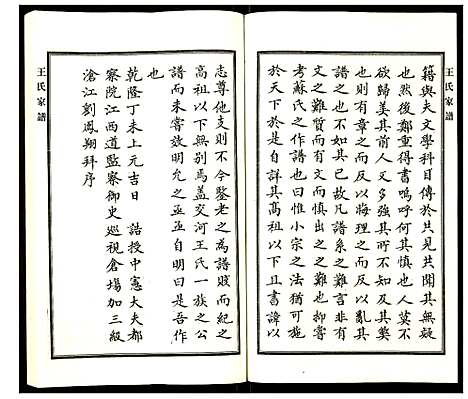 王氏家譜
籍與夫文學科目傳於共見共聞其無疑
也然後鄭重得書嗚呼何其慎也人莫不
欲歸美其前人又多強其所不知及其久
也則有章之而反以晦理之而反以亂其
譜之也不如其已故凡譜系之難言非有
文之難質而有文而慎出之之難也抑嘗
考蘇氏之作譜也曰惟小宗之法猶可施
於天下於是自詳其高祖以下且書諱以
志尊他支則不令鑒老之為譜賤而紀之
高祖以下無別焉蓋交河王氏一族之公
譜而未嘗效明允之亟亟自明曰是吾作
也
乾隆丁未上元吉日 誥授中憲大夫都
察院江西道監察御史 巡視倉場加三級
滄江劉鳳翔拜序
王氏家譜